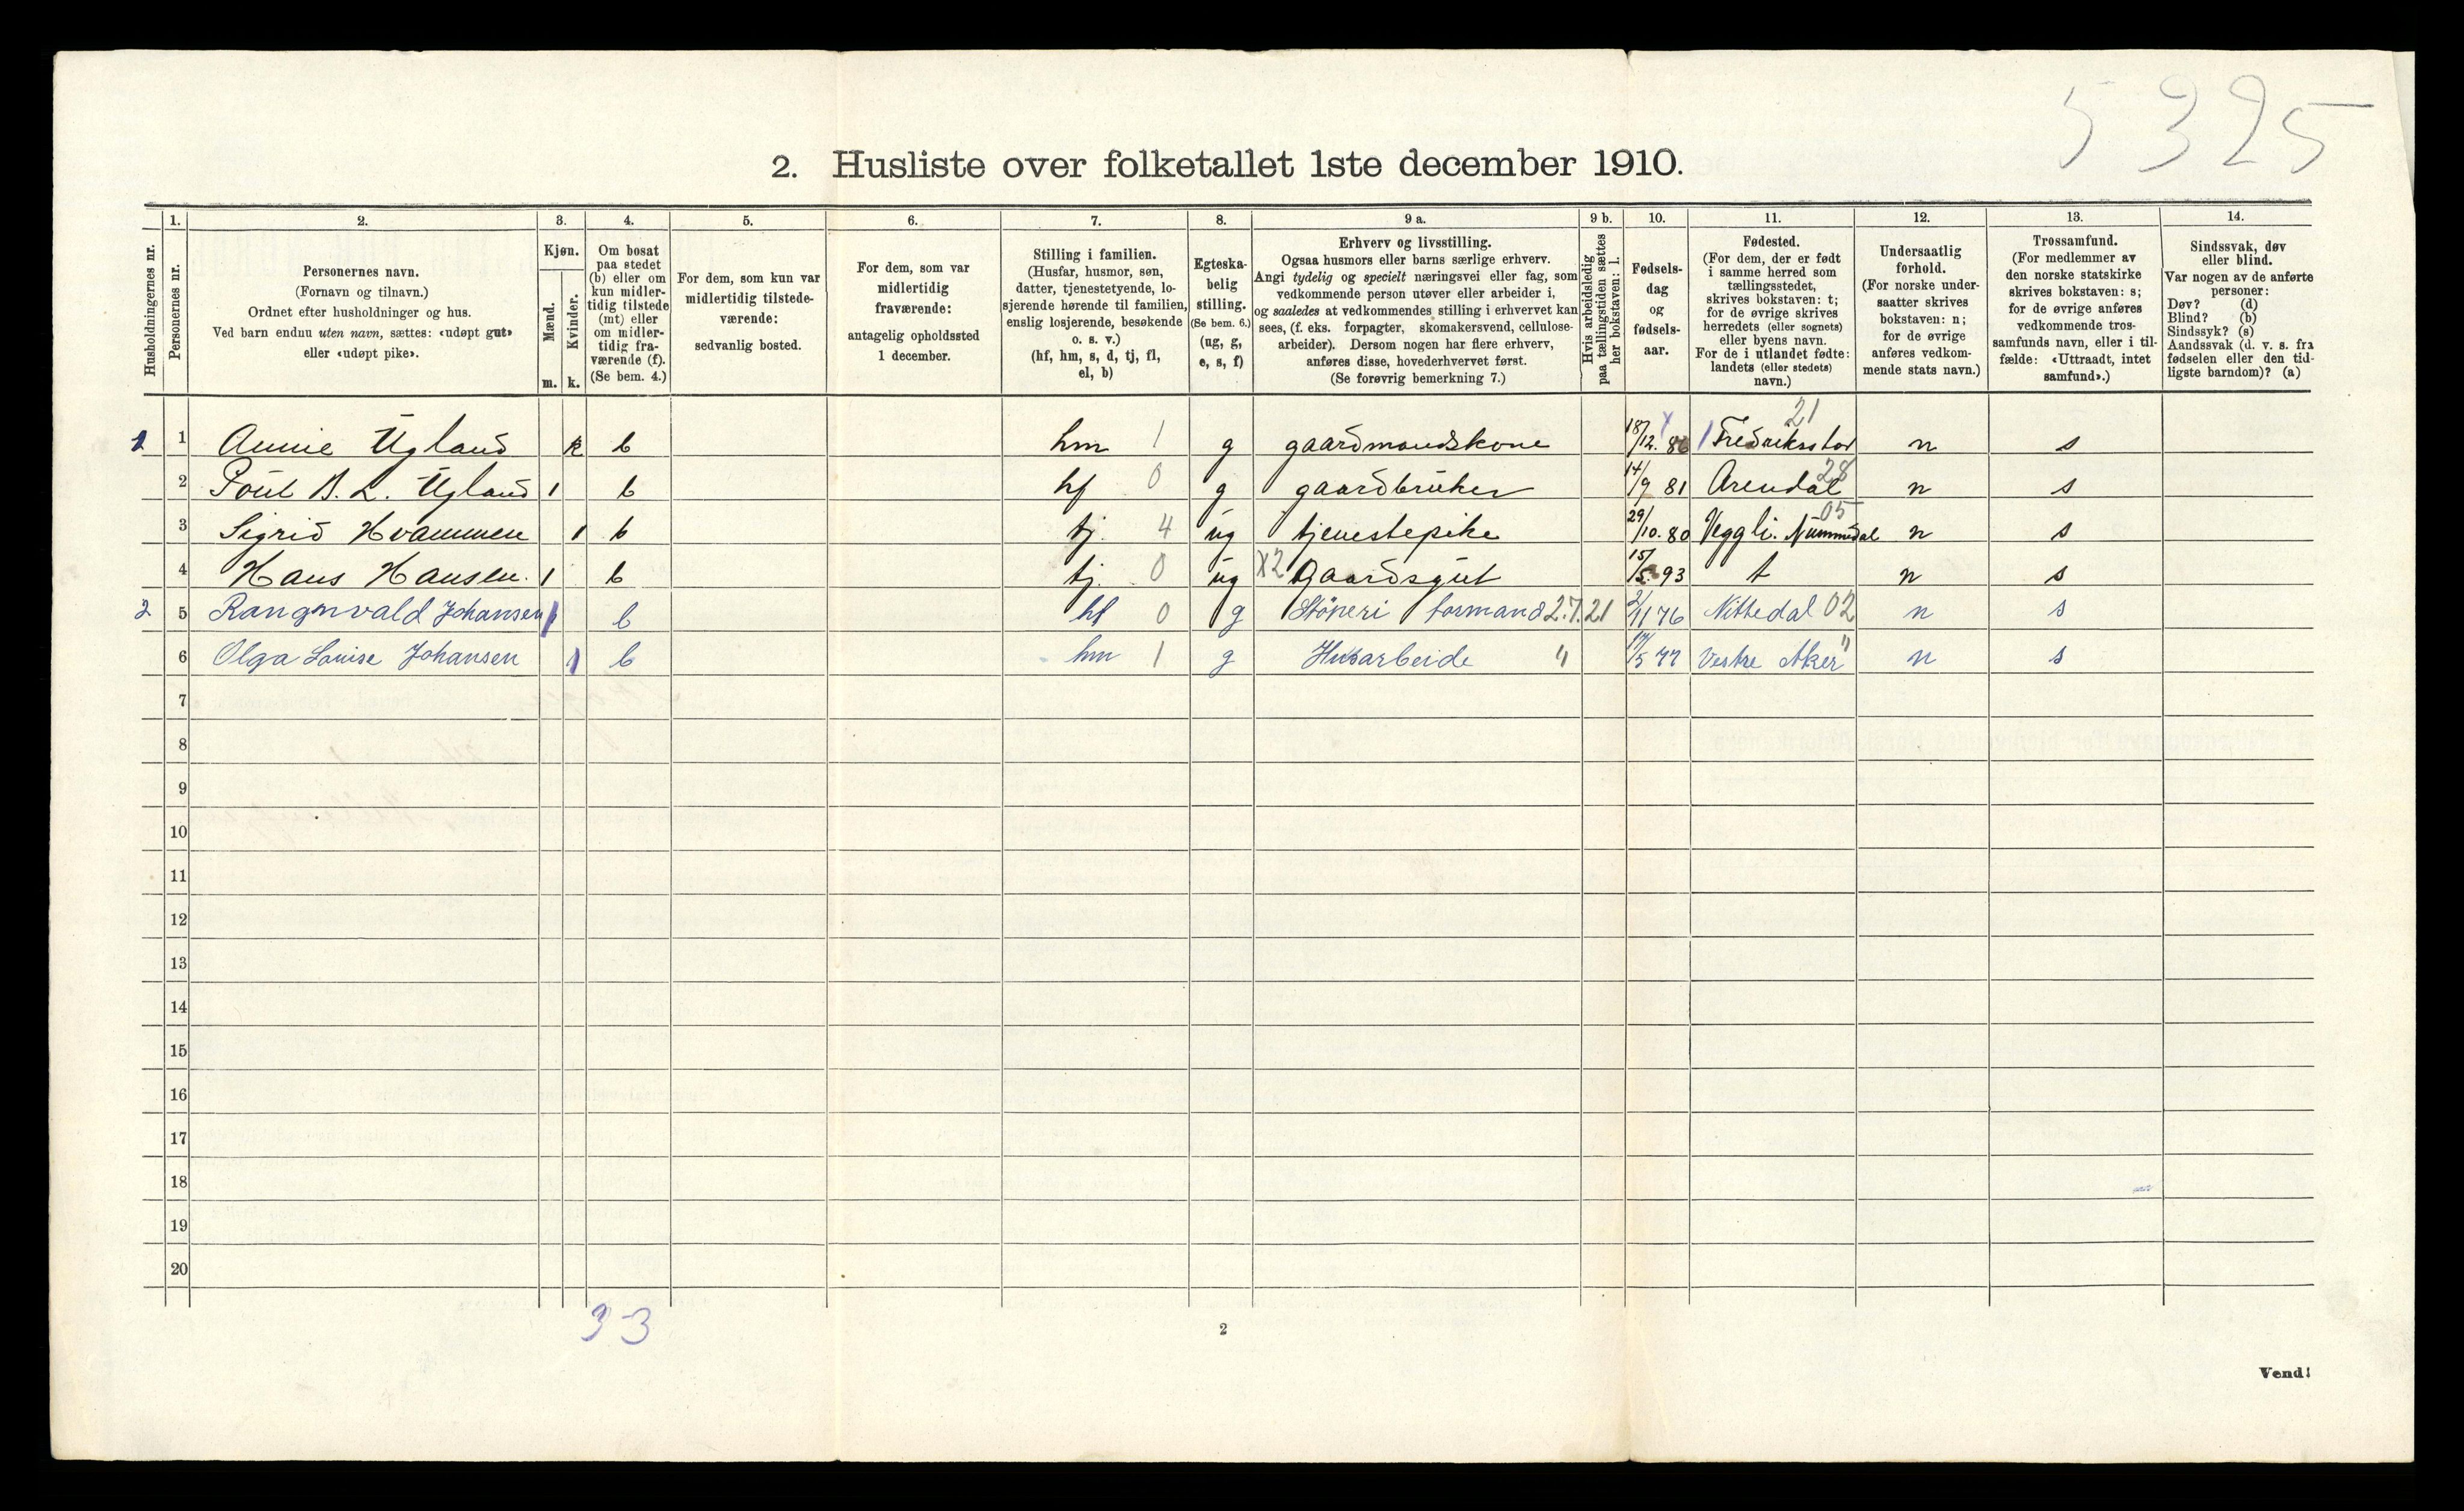 5325
2. Husliste over folketallet 1ste december 1910.
Husholdningernes nr.
1.
Personernes nr.
2.
Personernes navn.
(Fornavn og tilnavn.)
Ordnet efter husholdninger og hus.
Ved barn endnu uten navn, sættes: «udøpt gut»
eller «udøpt pike».
3.
Kjøn.
Mænd.
Kvinder.
m. k.
4.
Om bosat
paa stedet
(b) eller om
kun midler-
tidig tilstede
(mt) eller
om midler-
tidig fra-
værende (f).
(Se bem. 4.)
5.
For dem, som kun var
midlertidig tilstede-
værende:
sedvanlig bosted.
6.
For dem, som var
midlertidig
fraværende:
antagelig opholdssted
1 december.
7.
Stilling i familien.
(Husfar, husmor, søn,
datter, tjenestetyende, lo-
sjerende hørende til familien,
enslig losjerende, besøkende
o. s. v.)
(hf, hm, s, d, tj, fl,
el, b)
8.
Egteska-
belig
stilling.
(Se bem. 6.)
(ug, g,
e, s, f)
9 a.
Erhverv og livsstilling.
Ogsaa husmors eller barns særlige erhverv.
Angi tydelig og specielt næringsvei eller fag, som
vedkommende person utøver eller arbeider i,
og saaledes at vedkommendes stilling i erhvervet kan
sees, (f. eks. forpagter, skomakersvend, cellulose-
arbeider). Dersom nogen har flere erhverv,
anføres disse, hovederhvervet først.
(Se forøvrig bemerkning 7.)
9 b.
Hvis arbeidsledig
paa tællingstiden sættes
her bokstaven: l.
10.
Fødsels-
dag
og
fødsels-
aar.
11.
Fødested.
(For dem, der er født
i samme herred som
tællingsstedet,
skrives bokstaven: t;
for de øvrige skrives
herredets (eller sognets)
eller byens navn.
For de i utlandet fødte:
landets (eller stedets)
navn.)
12.
Undersaatlig
forhold.
(For norske under-
saatter skrives
bokstaven: n;
for de øvrige
anføres vedkom-
mende stats navn.)
13.
Trossamfund.
(For medlemmer av
den norske statskirke
skrives bokstaven: s;
for de øvrige anføres
vedkommende tros-
samfunds navn, eller i til-
fælde: «Uttraadt, intet
samfund».)
14.
Sindssvak, døv
eller blind.
Var nogen av de anførte
personer:
Døv? (d)
Blind? (b)
Sindssyk? (s)
Aandssvak (d. v. s. fra
fødselen eller den tid-
ligste barndom)? (a)
1 1 Annie Ugland k b hm 1 g gaardmandskone 18/12. 86 Fredriksstad 21 n s
2 Poul B. L. Ugland 1 b hf 0 g gaardbruker 14/9 81 Arendal 28 n s
3 Sigrid Hvammen 1 b tj. 4 ug tjenestepike 29/10. 80 Veggli. Nummedal 05 n s
4 Hans Hansen. 1 b tj. 0 ug X2 Gaardsgut 15/5. 93 t n s
2 5 Rangnvald Johansen 1 b hf 0 g Støperi formand 2.7.21 2/11 76 Nittedal 02 n s
6 Olga Louise Johansen 1 b hm 1 g Husarbeide " 17/5 77 Vestre Aker " n s
7
8
9
10
11
12
13
14
15
16
17
18
19
20
3 3
2
Vend!